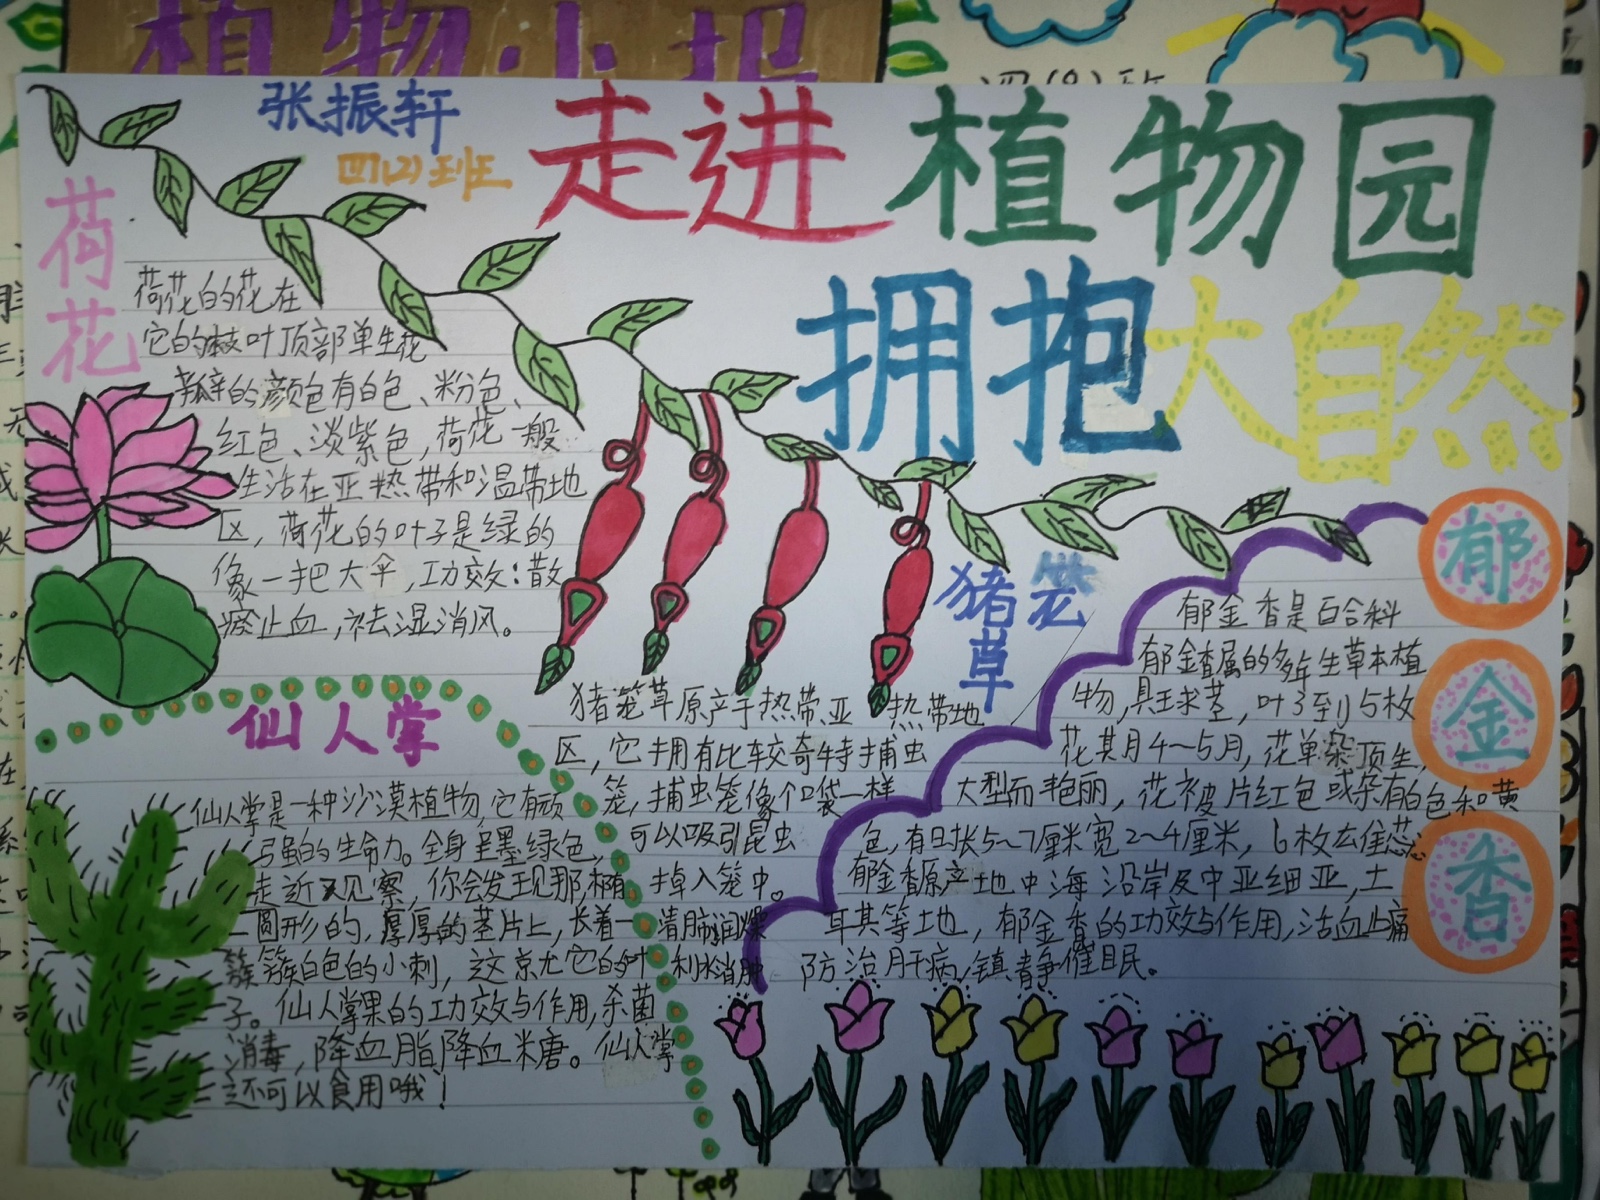 植物小报
四(8)班
张振轩
四(2)班
走进植物园
拥抱大自然
荷花
荷花的花在
它的枝叶顶部单生花
瓣的颜色有白色、粉色、
红色、淡紫色,荷花一般
生活在亚热带和温带地
区,荷花的叶子是绿的
像一把大伞,功效:散
瘀止血,祛湿消风。
仙人掌
仙人掌是一种沙漠植物,它有顽
强的生命力。全身呈墨绿色,
走近观察,你会发现那,椭
圆形的,厚厚的茎片上,长着一
簇簇白色的小刺,这就是它的叶
子。仙人掌果的功效与作用,杀菌
消毒,降血脂降血糖。仙人掌
还可以食用哦!
猪笼草
猪笼草原产于热带亚热带地
区,它拥有比较奇特捕虫
笼,捕虫笼像个口袋一样
可以吸引昆虫
掉入笼中。
清肺润燥
利水消肿
郁金香
郁金香是百合科
郁金香属的多年生草本植
物,具球茎,叶3到5枚
花其月4~5月,花单朵顶生,
大型而艳丽,花被片红色或杂有白色和黄
色,有日长5~7厘米宽2~4厘米,6枚雄蕊
郁金香原产地中海沿岸及中亚细亚,土
耳其等地,郁金香的功效与作用,活血止痛
防治肝病,镇静催眠。